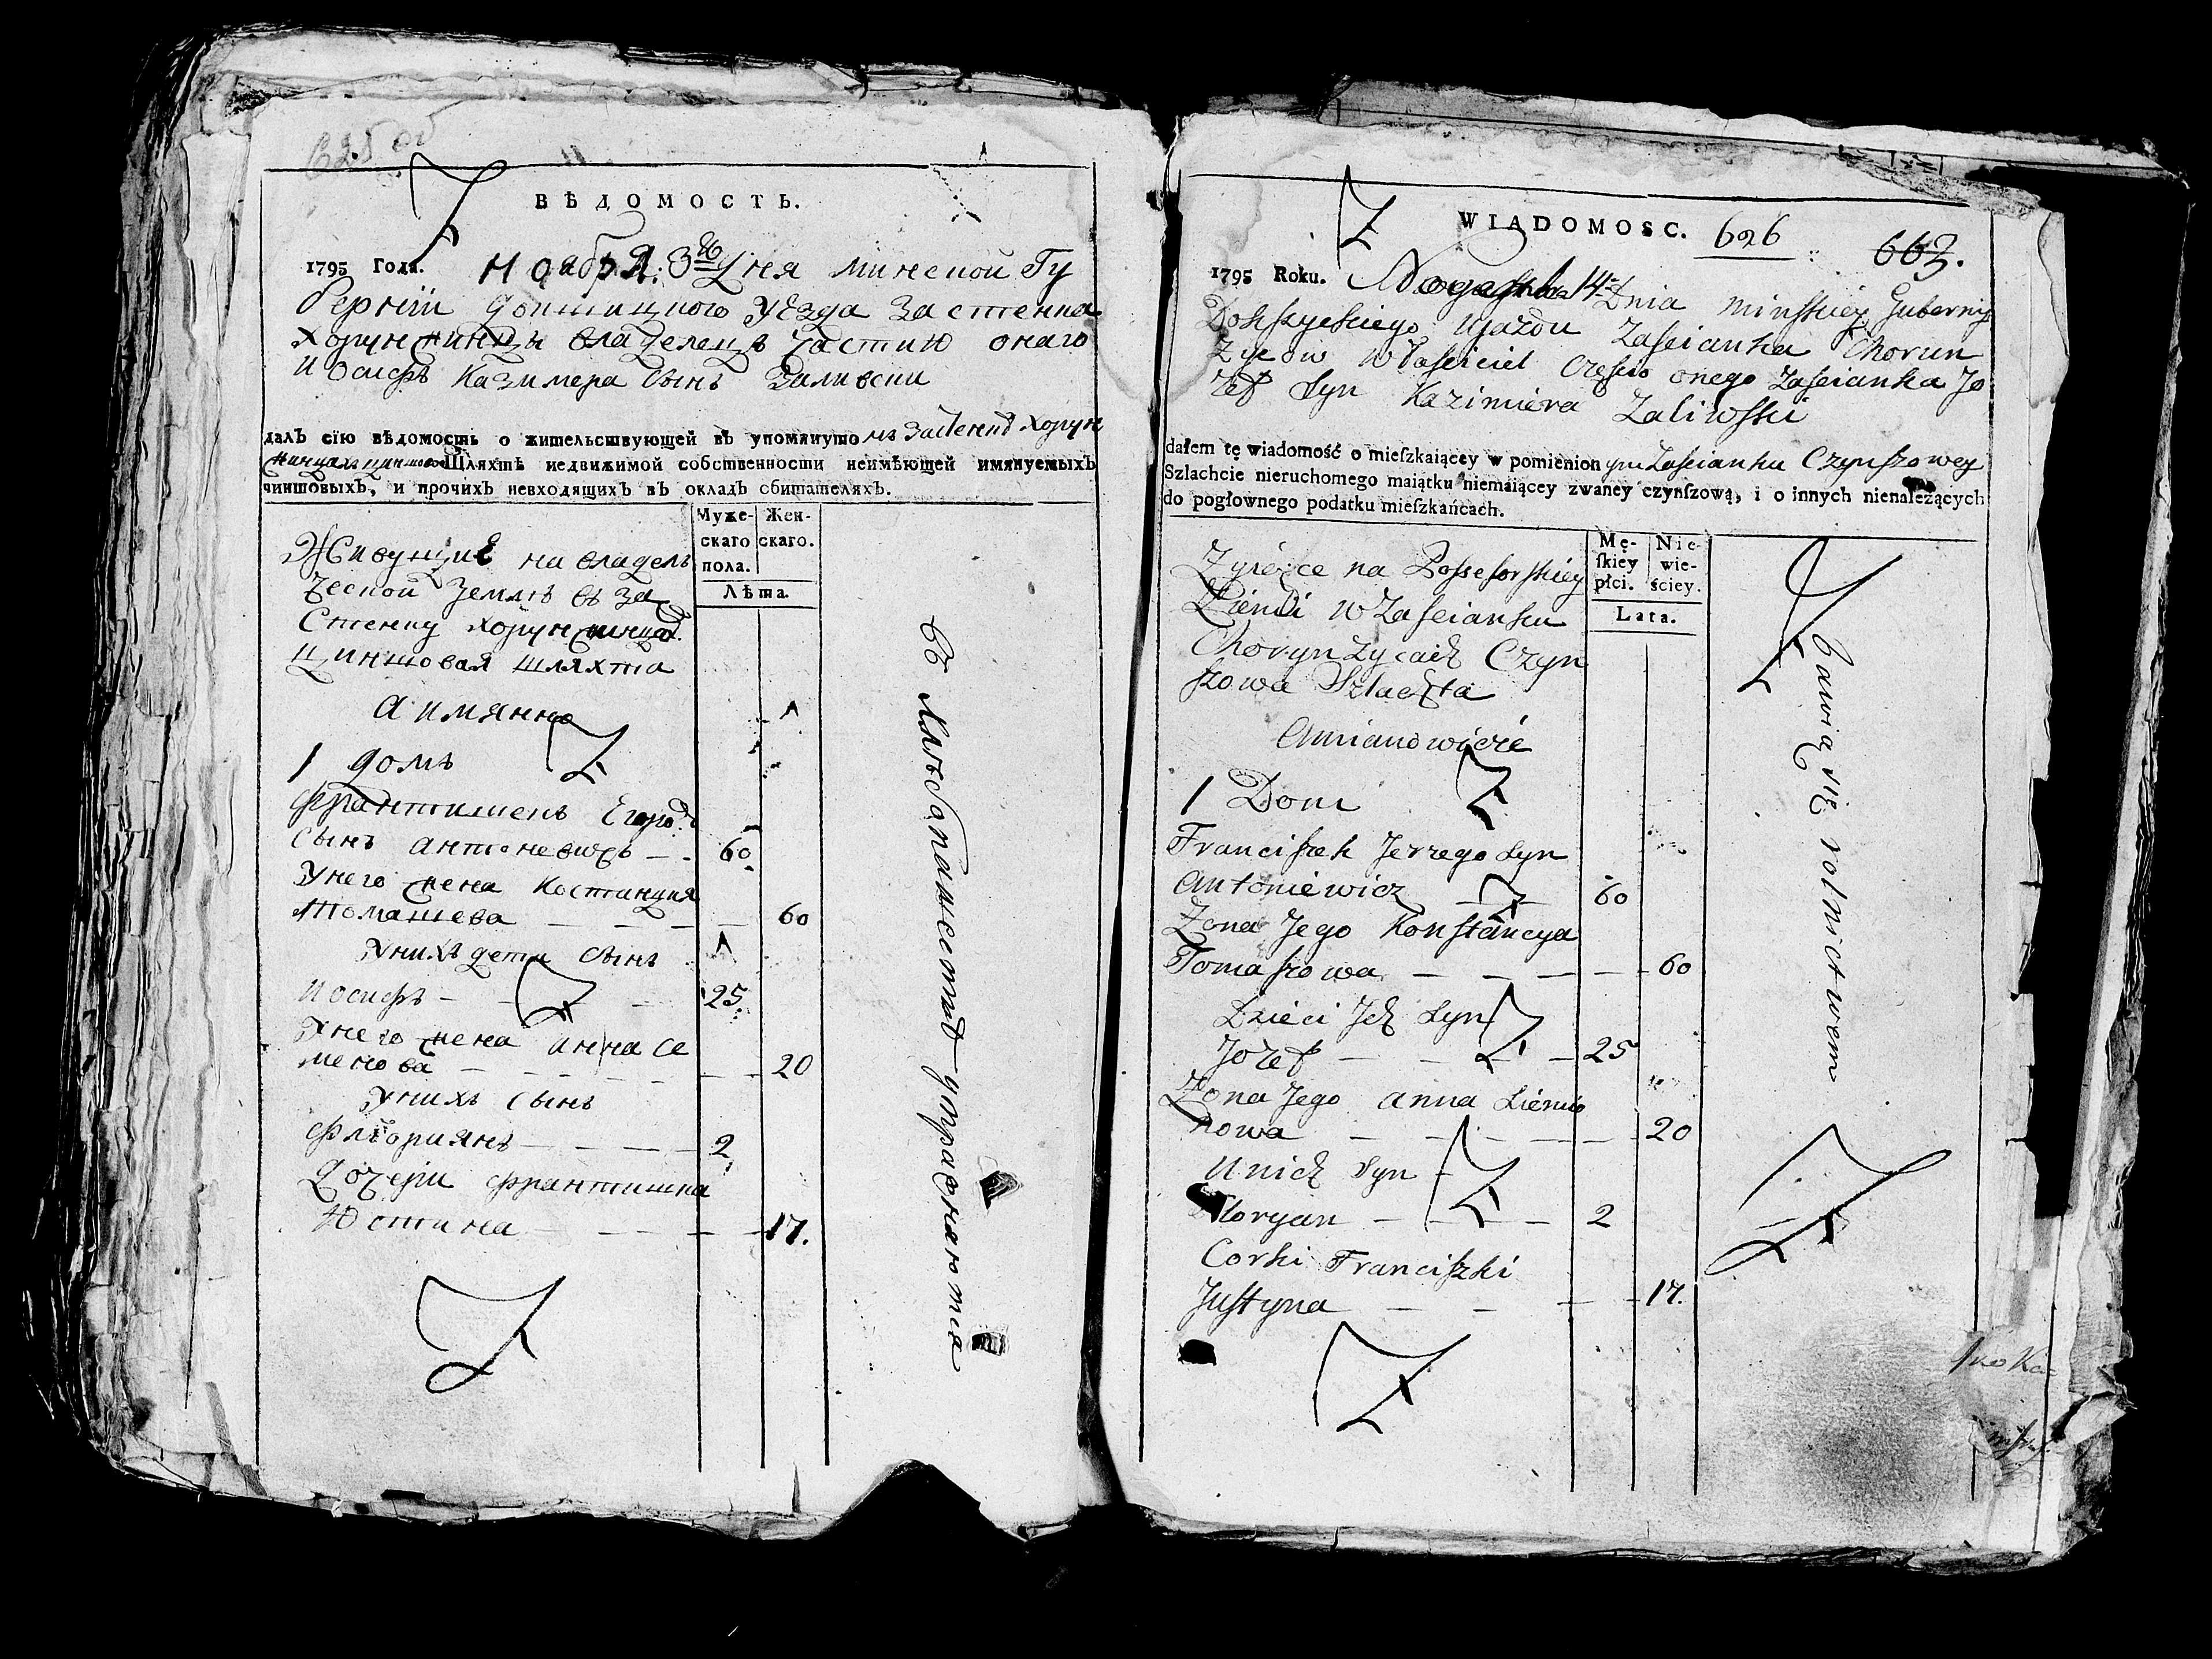 ВѢДОМОСТЬ.
1795 Года. Ноября 3го Дня минской Гу
берніи докшицкого уѣзда застенка
хорунжинцы владелецъ частию онаго
иосифъ казимера сынъ Заливски
далъ сїю вѣдомость о жительствующей въ упомянутомъ застенке хорун
жинцахъ чиншовой Шляхтѣ недвижимой собственности неимѣющей имянуемыхъ
чиншовыхъ, и прочихъ невходящихъ въ окладъ обитателяхъ.
Муже- Жен-
скаго скаго.
пола.
Лѣта.
Живущие на владель
ческой земле въ за
стенку хорунжинцах
циншовая шляхта
а имянно
1 домъ
франтишекъ Егоров
сынъ антоневичъ — . 60
унего жена костанция
томашева — — — 60
унихъ дети сынъ
иосифъ — — 25
унего жена анна се
менова — — — 20
унихъ сынъ
флориянъ — — — 2
дочери франтишка
юстина — — — 17.
въ хлебопашестве упражняютца
WIADOMOSC. 626 663.
1795 Roku. 14 Dnia minſkiey Guberny
Dokſzyckiego ujazdu Zaſcianka Chorun
życow Właſciciel Częſcio onego Zaſcianka Jo
zef Syn Kazimiera Zaliwſki
dałem tę wiadomość o mieſzkaiącey w pomienionym Zaſcianku Czynſzowey
Szlachcie nieruchomego maiątku niemaiącey zwaney czynſzową, i o innych nienależących
do pogłownego podatku mieſzkańcach.
Mę- Nie-
ſkiey wie-
płci. ściey.
Lata.
Żyiące na Poſseſorſkiey
Ziemi w Zaſcianku
Chorynżycach Czyn
ſzowa Szlachta
Amianowicie
1 Dom
Franciſzek Jerzego Syn
Antoniewicz — — 60
Zona Jego Konſtancya
Tomaſzowa — — — 60
Dzieci Jch Syn
Jozef — — — 25
Zona Jego anna Siemio
nowa — — — 20
U nich Syn
Floryan — — — 2
Corki Franciſzki
Juſtyna — — — 17.
bawią się rolnictwem